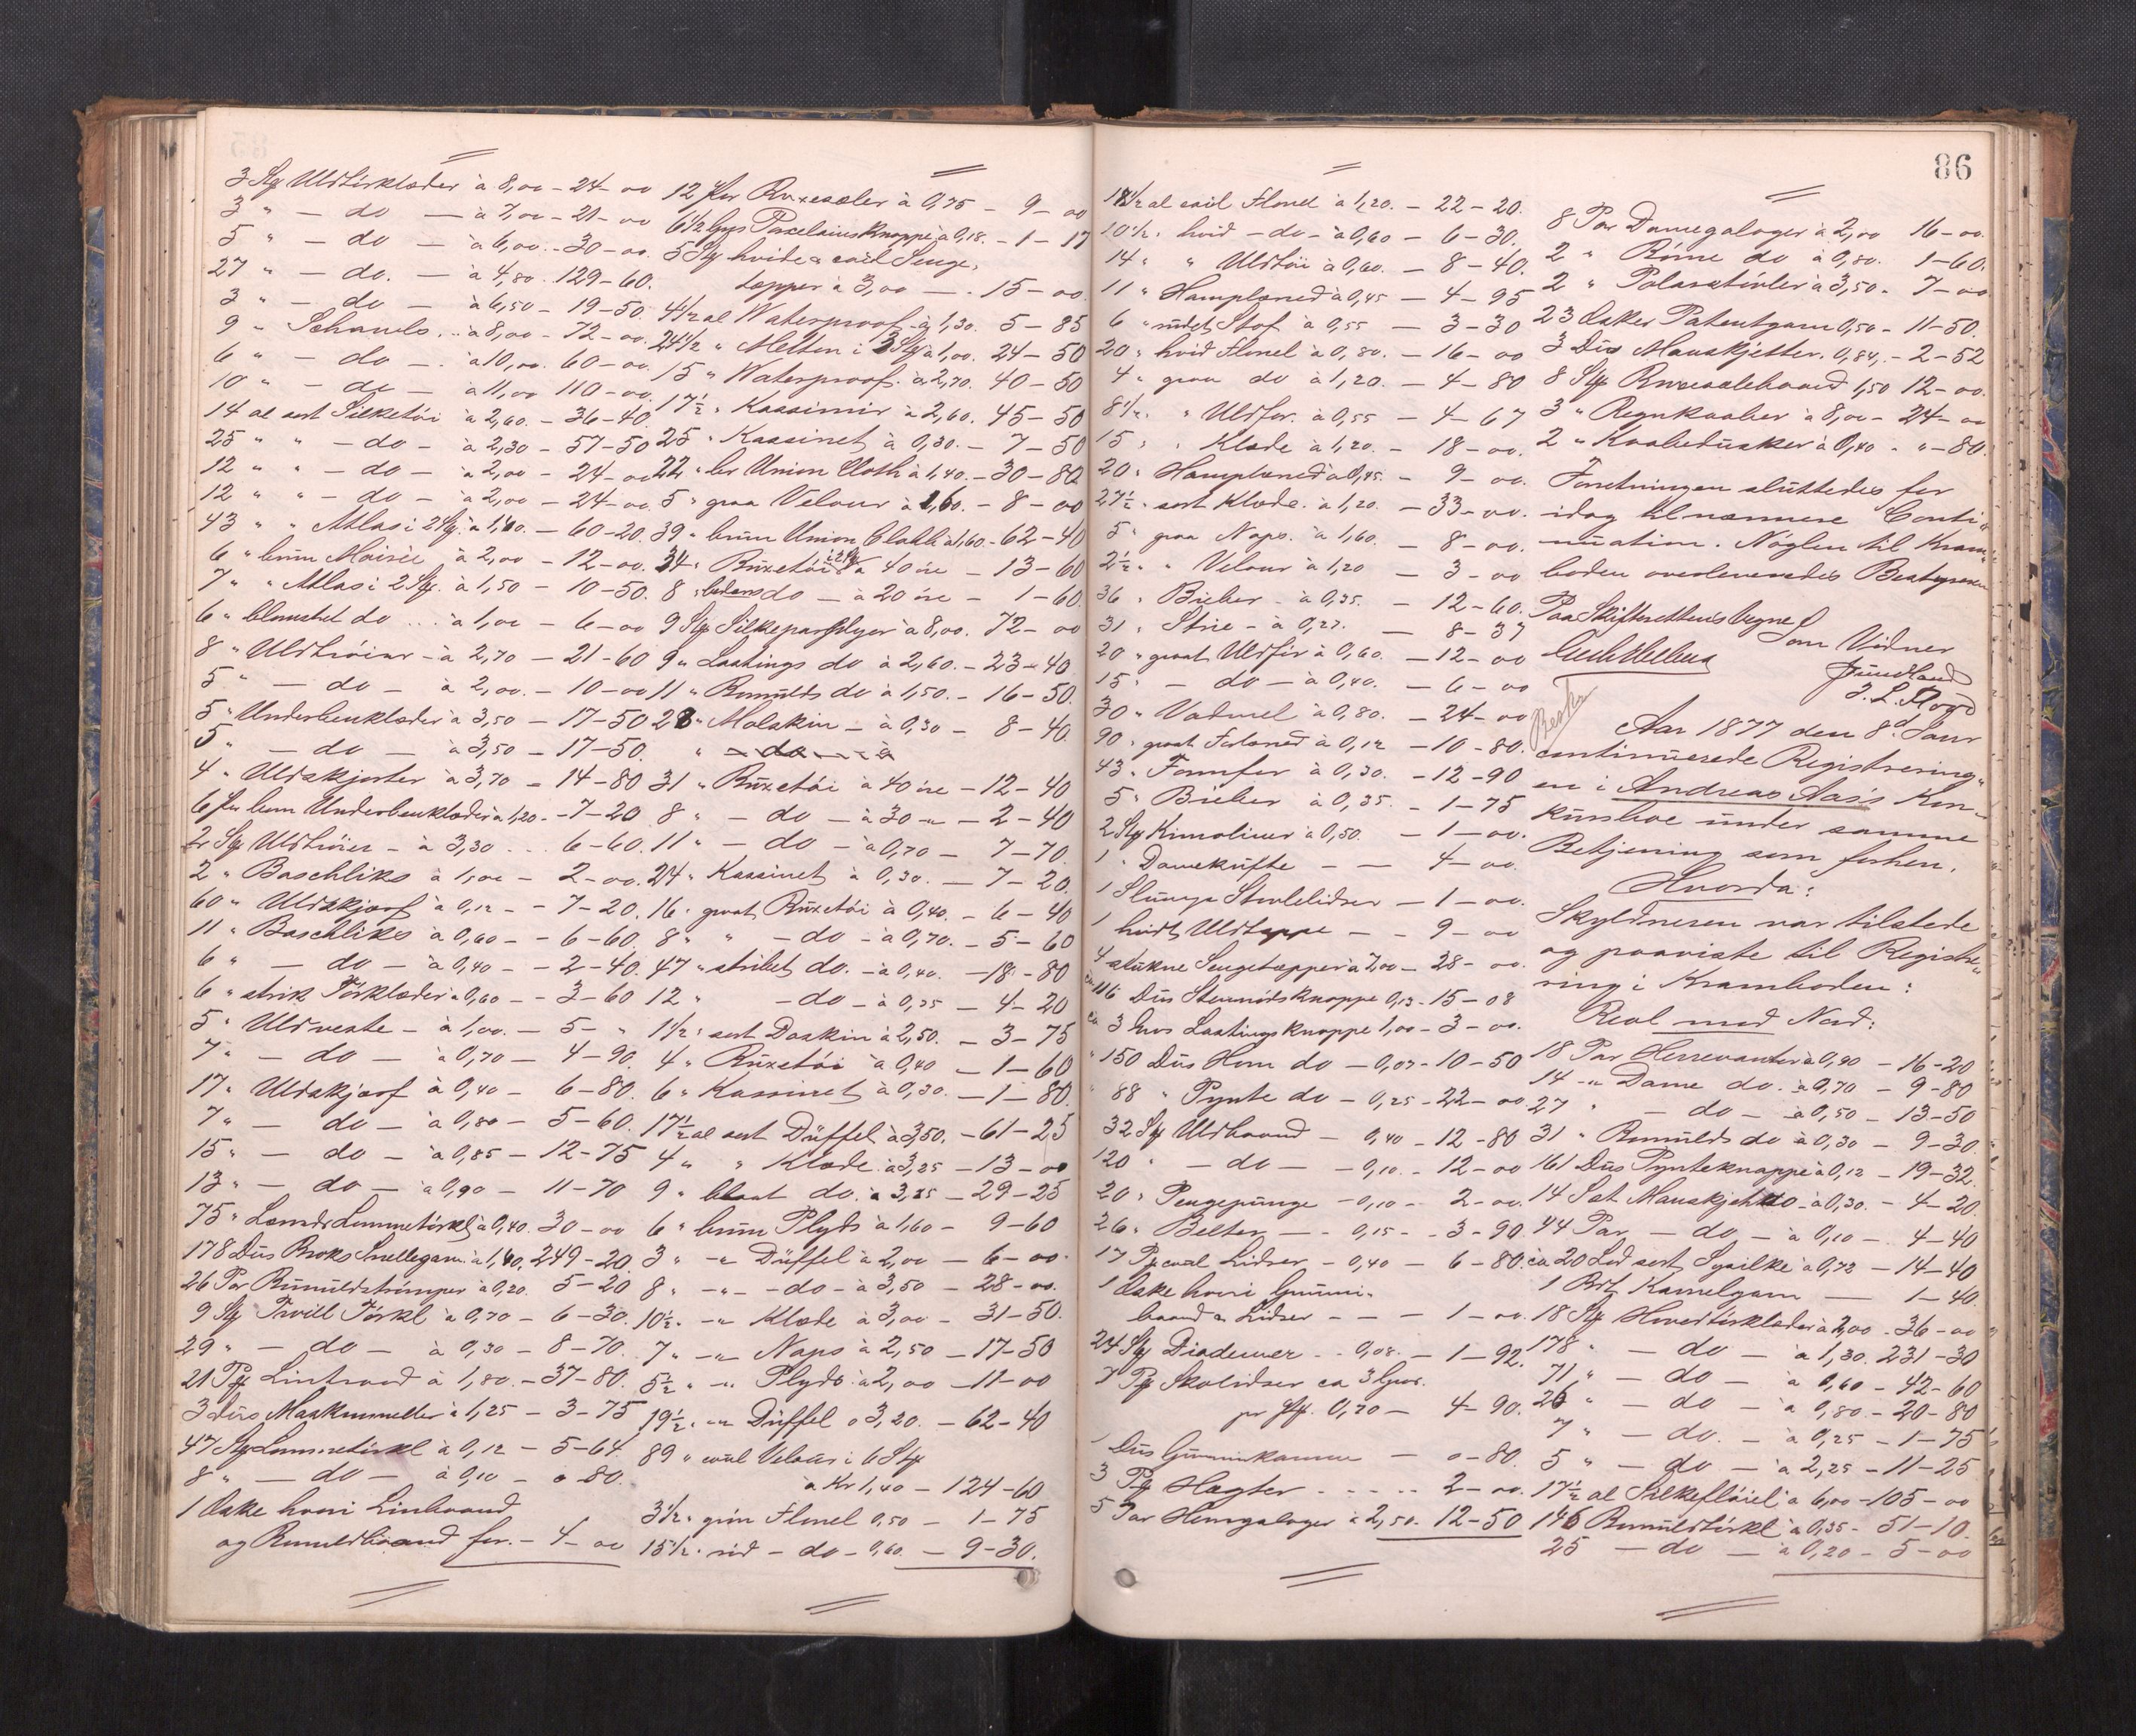 3 Stg Uldtørklæder à 8,00 - 24 - 00
3 " - do - à 7,00 - 21 - 00
5 " - do - à 6,00 - 30 - 00.
27 " - do. - à 4,80. 129 - 60.
3 " - do - à 6,50 - 19 - 50.
9 " Schawls .. à 8,00 - 72 - 00.
6 " - do - . à 10,00. 60 - 00.
10 " - do - à 11,00 110 - 00.
14 al sort Silketöi à 2,60. - 36 - 40.
25 " " - do - à 2,30 - 57 - 50
12 " " - do - à 2,00 - 24 - 00
12 " " - do - à 2,00 - 24 - 00.
43 " " Atlas i 2 Stg. à 1,40. - 60 - 20.
6 " brun Moirée à 2,00 - 12 - 00.
7 " " Atlas i 2 Stg. à 1,50 - 10 - 50.
6 " blomstet do ... à 1,00 - 6 - 00
8 " Uldtröier - à 2,70 - 21 - 60
5 " - do - à 2,00. - 10 - 00
5 " Underbenklæder à 3,50 - 17 - 50
5 " - do - à 3,50 - 17 - 50.
4 " Uldskjorter à 3,70 - 14 - 80
6 brun Underbenklæder à 1,20. - 7 - 20
2 Stg Uldtröier - à 3,30 ... 6 - 60.
2 " Baschliks à 1,00 - 2 - 00.
60 " Uldskjærf à 0,12 - - 7 - 20.
11 " Baschliks à 0,60 - - 6 - 60.
6 " - do - à 0,40 - - 2 - 40.
6 " strik Törklæder à 0,60 - - 3 - 60
5 " Uldveste - à 1,00. - 5 - "
7 " - do - à 0,70 - 4 - 90.
17 " Uldskjærf à 0,40 - 6 - 80.
7 " - do - à 0,80 - 5 - 60.
15 " - do - à 0,85 - 12 - 75
13 " - do - à 0,90 - 11 - 70
75 " Lommetörkl à 0,40. 30 - 00
178 Dus Broks Snellegarn à 1,40. 249 - 20.
26 Par Bomuldströmper à 0,20. 5 - 20
9 Stg Twill Törkl à 0,70 - 6 - 30.
29 " - do - à 0,30 - 8 - 70.
21 Pg Lintraad à 1,80. - 37 - 80.
3 Dus Maskinsneller à 1,25 - 3 - 75
47 Stg Lommetörkl à 0,12 - 5 - 64
8 " - do - à 0,10 - 0 - 80.
1 Æske hvori Linbaand
og Bomuldsbaand for. - 4 - 00
12 Buxesæler à 0,75 - 9 - 00
6 1/2 Grs Porcelainsknappe à 0,18. - 1 - 17
5 Stg hvide & coul Senge-
tæpper à 3,00 - . 15 - 00.
4 1/2 al Waterproof - à 1,30. 5 - 85
24 1/2 " Melton i 3 Stg à 1,00. 24 - 50
15 " Waterproof. à 2,70. 40 - 50
17 1/2 " Kassimir à 2,60. 45 - 50
25 " Kassinet à 0,30. - 7 - 50
22 " Union Cloth à 1,40. - 30 - 80
5 " graa Velour à 1,60. - 8 - 00
39 " brun Union Clohh à 1,60 - 62 - 40
34 " Buxetöi i 2 Stg à 40 öre - 13 - 60
8 " do - à 20 öre - 1 - 60.
9 Stg Silkeparaplyer à 8,00. 72 - 00
9 " Lastings do à 2,60. - 23 - 40
11 " Bomulds do à 1,50. - 16 - 50.
28 " Molskin - à 0,30 - 8 - 40.
" - do - à
31 " Buxetöi à 40 öre - 12 - 40
8 " - do - à 30 " - 2 - 40
11 " - do - à 0,70 - 7 - 70.
24 " Kassinet à 0,30. - 7 - 20.
16 " graat Buxetöi à 0,40. - 6 - 40
8 " " - do - à 0,70. - 5 - 60
47 " stribet do. - à 0,40. - 18 - 80
12 " - do - à 0,35 - 4 - 20
1 1/2 " sort Doskin à 2,50. - 3 - 75
4 " Buxetöi à 0,40 - 1 - 60
6 " Kassinet à 0,30. - 1 - 80.
17 1/2 al sort Düffel à 3,50. - 61 - 25
4 " " Klæde à 3,25 - 13 - 00
9 " blaat do. à 3,25 - 29 - 25
6 " brun Plyds à 1,60 - 9 - 60
3 " -"- Düffel à 2,00 - 6 - 00.
8 " -"- - do - à 3,50 - 28 - 00.
10 1/2 " -"- Klæde à 3,00 - 31 - 50.
7 " -"- Naps à 2,50 - 17 - 50
5 1/2 " -"- Plyds à 2,00 - 11 - 00
19 1/2 " -"- Düffel à 3,20. - 62 - 40
89 " coul Velour i 6 Stg
à Kr 1,40 - 124 - 60
3 1/2 " grön Flonel 0,50 - 1 - 75
15 1/2 " röd - do - 0,60. - 9 - 30.
86
18 1/2 al coul Flonel à 1,20. - 22 - 20.
10 1/2 " hvid - do - à 0,60 - 6 - 30.
14 " " Uldtöi à 0,60. - 8 - 40.
11 " Hamplærred à 0,45 - 4 - 95
6 " Stof à 0,55 - 3 - 30
20 " hvid Flonel à 0,80. - 16 - 00
4 " graa do à 1,20. - 4 - 80
8 1/2 " " Uldfor. à 0,55 - 4 - 67
15 " " Klæde à 1,20. - 18 - 00.
20 " Hamplærred à 0,45. - 9 - 00.
27 1/2 " sort Klæde. à 1,20. - 33 - 00.
5 " graa Naps. à 1,60. - 8 - 00.
2 1/2 " " Velour à 1,20 - 3 - 00
36 " Bieber - à 0,35. - 12 - 60.
31 " Strie - à 0,27. - 8 - 37
20 " graat Uldfor à 0,60. - 12 - 00
15 " - do - à 0,40. - 6 - 00
30 " Vadmel à 0,80. - 24 - 00
90 " graat Forlærred à 0,12 - 10 - 80.
43 " Formfor à 0,30. - 12 - 90
5 " Bieber à 0,35. - 1 - 75
2 Stg Krinoliner à 0,50. - 1 - 00.
1 " Damekufte - - 4 - 00.
1 Slumpe Stövlelidser - 1 - 00.
1 hvidt Uldtæppe - - 9 - 00
4 Sengetæpper à 7,00 - 28 - 00.
ca 116 Dus Steennödsknappe 0,13 - 15 - 08
ca 3 Gros Lastings knappe 1,00 - 3 - 00.
" 150 Dus Horn do - 0,07 - 10 - 50
" 88 " Pynte do - 0,25 - 22 - 00
32 Stg Uldbaand - 0,40 - 12 - 80
120 " - do - - 0,10 - 12 - 00
20 " Pengepunge - 0,10 - 2 - 00.
26 " Belter - - 0,15 - - 3 - 90.
17 Pg coul Lidser - 0,40 - 6 - 80.
1 Æske hvori Gummi-
baand & Lidser - - - 1 - 00.
24 Stg Diademer .. 0,08. - 1 - 92.
7 Pg Skolidser ca 3 Gros.
pr Stg. 0,70 - 4 - 90.
1 Dus Gummikamme - 0 - 80.
3 Pg Hægter . . . . 2 - 00.
5 Par Herregaloger à 2,50. 12 - 50
8 Par Damegaloger à 2,00 16 - 00.
2 " Börne do à 0,80. 1 - 60.
2 " Polarstövler à 3,50. 7 - 00
23 Æsker Patentgarn 0,50 - 11 - 50.
3 Dus Manskjetter. 0,84. - 2 - 52
8 Stg Buxesælebaand 1,50 12 - 00.
3 " Regnkaaber à 8,00 - 24 - 00
2 " Kaabedusker à 0,40 . " - 80.
Forretningen sluttedes for
idag til nærmere Conti-
nuation. Nöglen til Kram-
boden overleveredes Bestyreren
Paa Skifterettens Vegne
Som Vidner
Sundland
J. L. Flogd
Aar 1877 den 8d Janr
continuerede Registrering-
en i Andreas Aas's Kon-
kursboe under samme
Betjening som forhen.
Hvorda:
Skyldneren var tilstede
og paaviste til Registre-
ring i Kramboden:
Reol mod Nord:
18 Par Herrevanter à 0,90 - 16 - 20
14 -"- Dame do. à 0,70 - 9 - 80
27 " - do - à 0,50 - 13 - 50
31 " Bomulds do à 0,30 - 9 - 30.
161 Dus Pynteknappe à 0,12 - 19 - 32.
14 Sæt Manskjet do - à 0,30. - 4 - 20.
44 Par - do - à 0,10 - 4 - 40
ca 20 Lod sort Sysilke à 0,72 - 14 - 40
1 Brf Kamelgarn - 1 - 40.
18 Stg Hovedtörklæder à 2,00 - 36 - 00
178 " - do - à 1,30. 231 - 30
71 " - do - à 0,60 - 42 - 60
26 " - do - à 0,80 - 20 - 80
7 " - do. - à 0,25 - 1 - 75
5 " - do - à 2,25 - 11 - 25
17 1/2 al Silkeflöiel à 6,00 - 105 - 00
146 Bomuldstörkl à 0,35 - 51 - 10.
25 - do - à 0,20 - 5 - 00